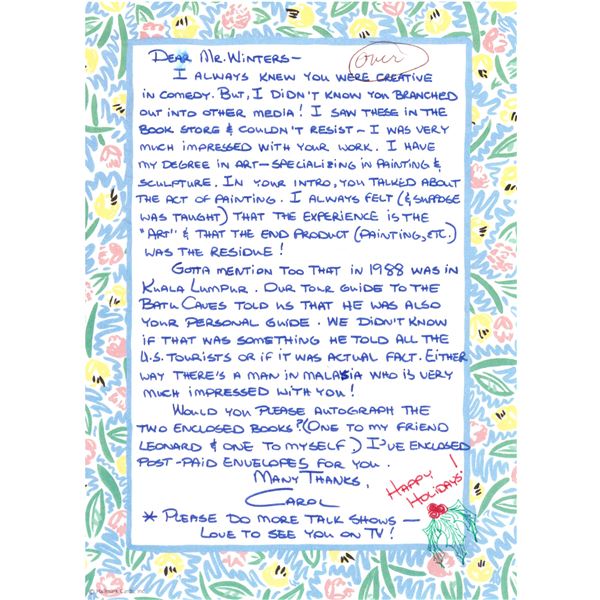 Dear Mr. Winters-
Over
I always knew you were creative
in comedy. But, I didn't know you branched
out into other media! I saw these in the
book store & couldn't resist - I was very
much impressed with your work. I have
my degree in art - specializing in painting &
sculpture. In your intro, you talked about
the act of painting. I always felt (& suppose
was taught) that the experience is the
"art" & that the end product (painting, etc.)
was the residue!
Gotta mention too that in 1988 was in
Kuala Lumpur. Our tour guide to the
Batu Caves told us that he was also
your personal guide. We didn't know
if that was something he told all the
U.S. tourists or if it was actual fact. Either
way there's a man in Malasia who is very
much impressed with you!
Would you please autograph the
two enclosed books? (One to my friend
Leonard & one to myself.) I've enclosed
post-paid envelopes for you.
Many Thanks,
Carol
Happy !
Holidays!
* Please do more talk shows -
Love to see you on TV!
© Hallmark Cards, Inc.